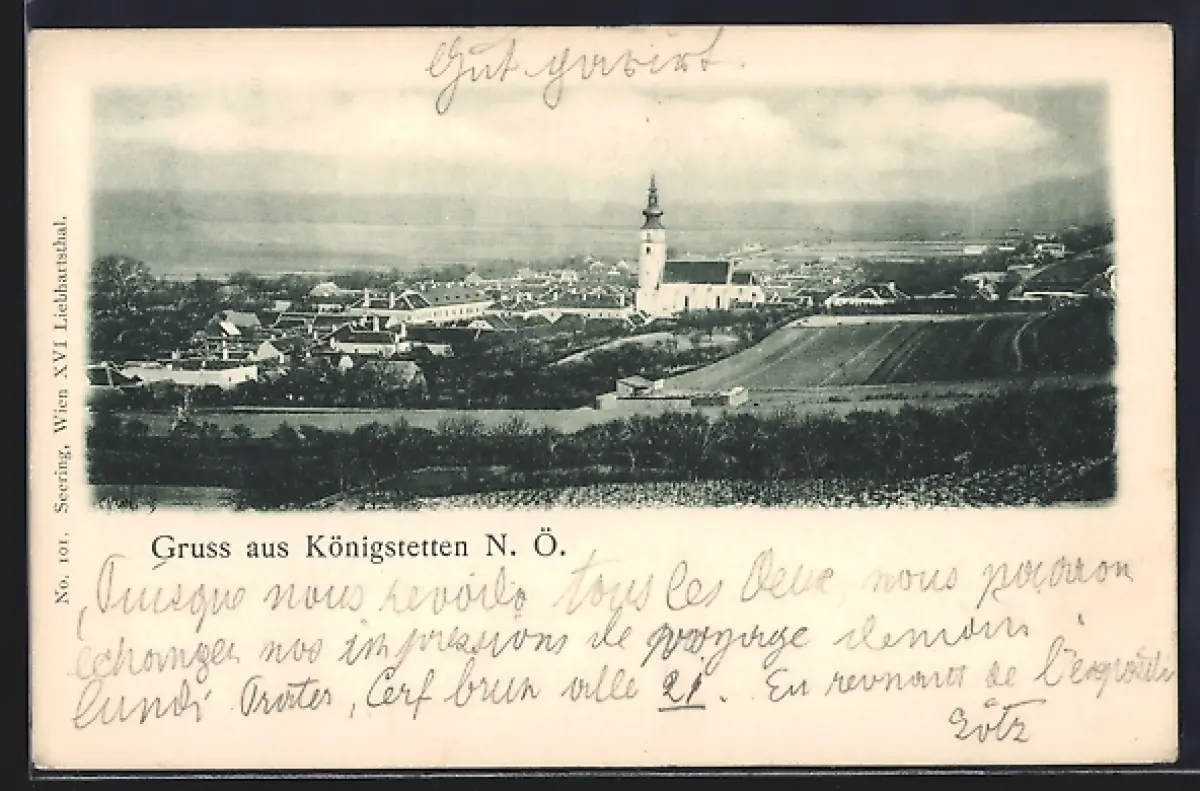 Gut
No. 101. Seering, Wien XVI Liebhartsthal.
Gruss aus Königstetten N. Ö.
Puisque nous revoilà tous les deux, nous pouvons
échanger nos impressions de voyage demain
lundi Prater, Cerf brun allée 21. En revenant de
Götz